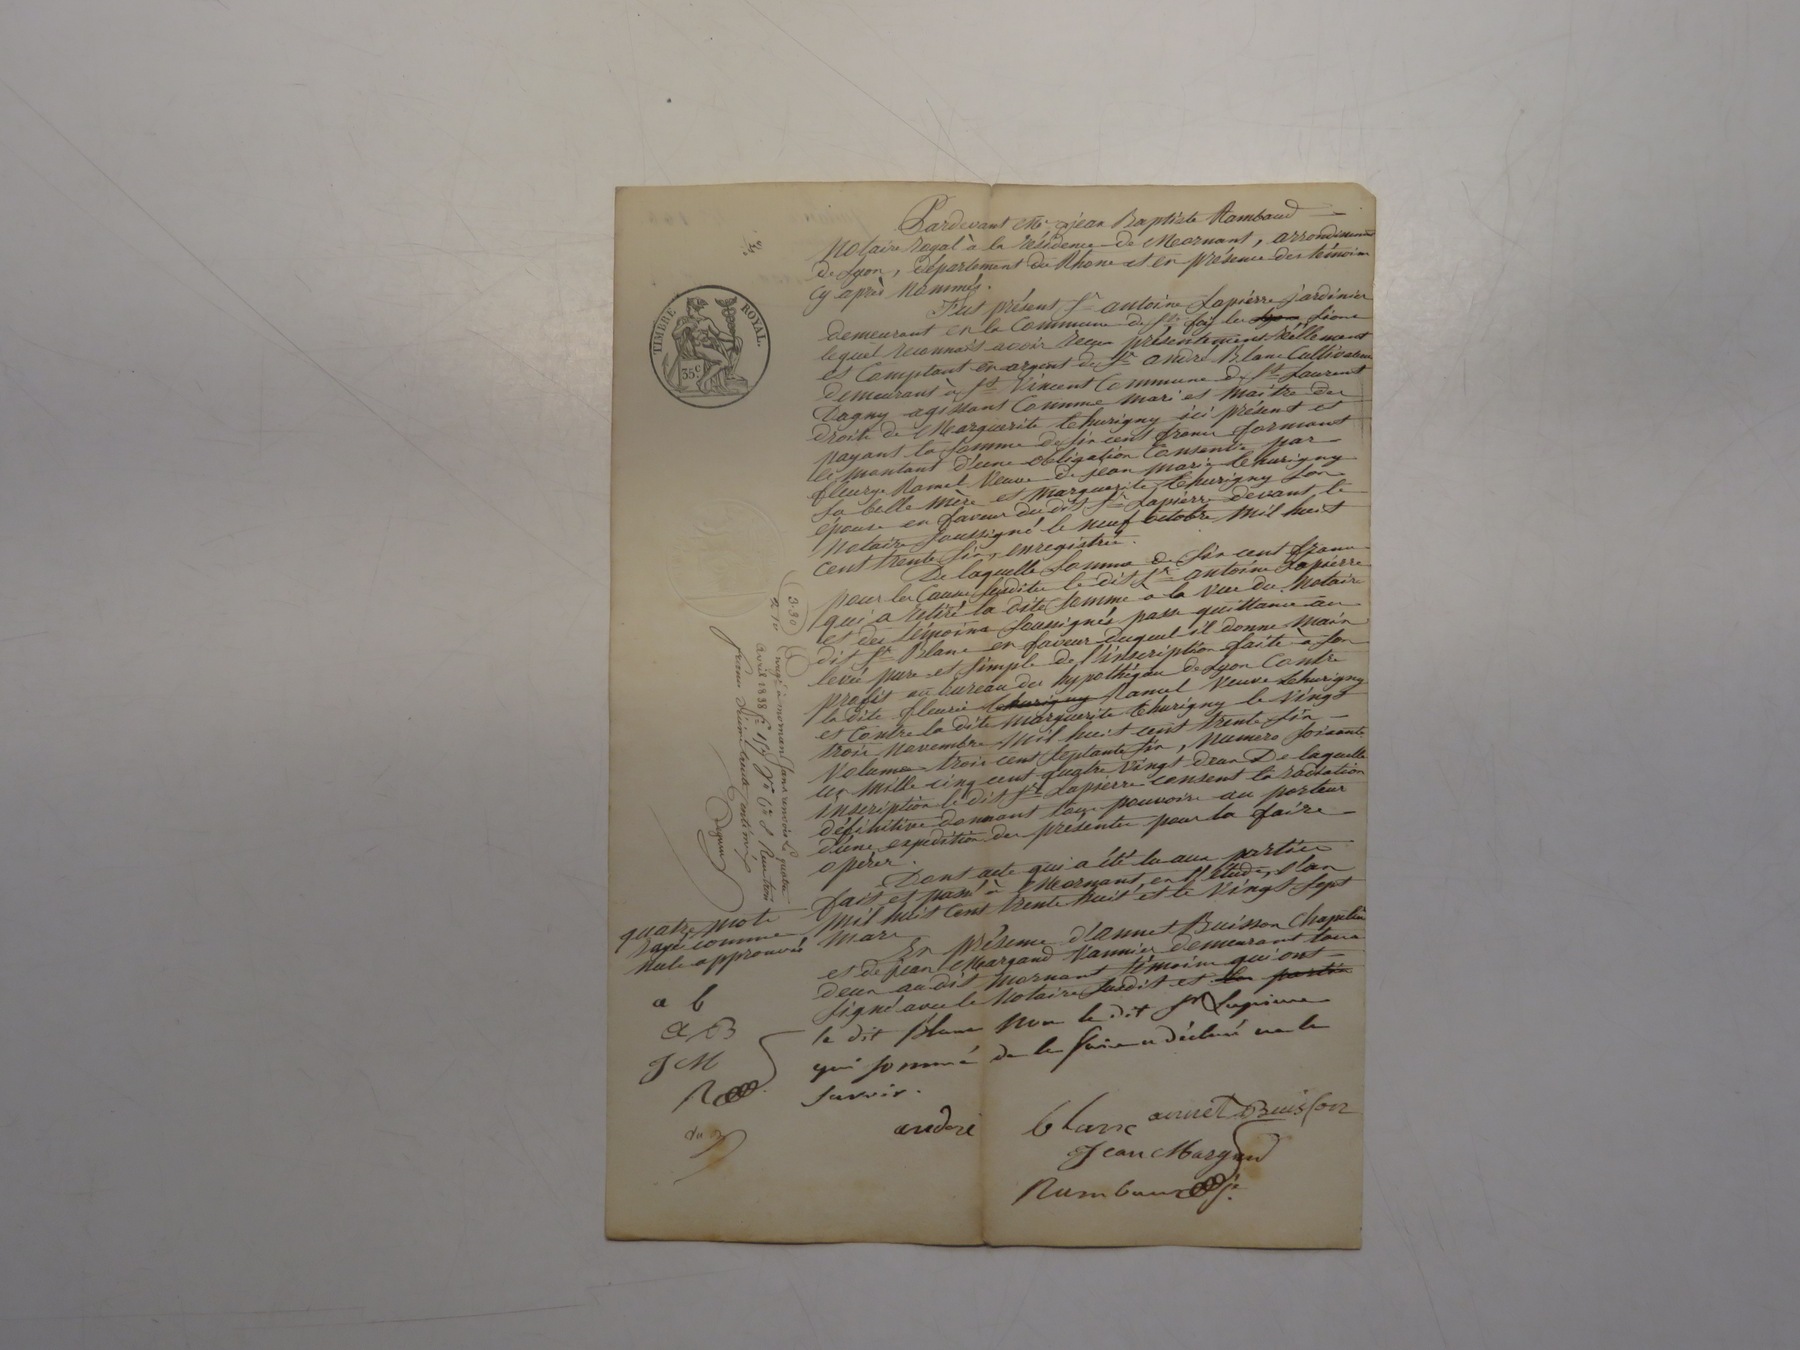 Pardevant Me Jean Baptiste Rambaud
Notaire royal à la résidence de Mornant, arrondissement
de Lyon, département du Rhône et en présence des témoins
cy après nommés.
TIMBRE ROYAL.
35c
Fut présent Sr antoine Lapierre jardinier
demeurant en la Commune de Ste foy les Lions
lequel reconnais avoir reçu présentement réellement
et Comptant en argent de Sr andré Blanc Cultivateur
demeurant à St Vincent Commune de St Laurent
Dagny agissant Comme mari et maître des
droits de Marguerite thurigny ici présent et
payant la Somme de six cent francs formant
le montant d'une obligation Consentie par
fleurye Ramel Veuve de jean marie thurigny
sa belle mère et marguerite thurigny son
épouse en faveur du dit Sr Lapierre devant le
Notaire soussigné le neuf octobre mil huit
cent trente six, enregistrée.
De laquelle somme de six cent francs
pour les Causes susdites le dit Sr antoine Lapierre
qui a retiré la dite somme à la vue du Notaire
et des témoins soussignés passe quittance au
dit Sr Blanc en faveur duquel il donne main
levée pure et simple de l'inscription faite à son
profit au bureau des hypothèques de Lyon Contre
la dite fleurie thurigny Ramel Veuve thurigny
et Contre la dite marguerite thurigny le vingt
trois novembre mil huit cent trente six
Volume trois cent septante six, numero soixante
un mille cinq cent quatre vingt deux De laquelle
inscription le dit Sr Lapierre consent la radiation
définitive donnant tous pouvoirs au porteur
d'une expédition des présentes pour la faire
opérer.
Dont acte qui a été lu aux parties
fait et passé à Mornant en l'étude, l'an
mil huit cent trente huit et le vingt sept
mars
En présence d'annet Buisson Chapelier
et de jean Margand Vannier demeurant tous
deux au dit mornant témoins qui ont
signé avec le Notaire susdit et les parties
le dit Blanc non le dit Sr Lapierre
qui sommé de le faire a déclaré ne le
savoir.
3-30
avril 1838
quatre mots
rayés comme
nuls approuvés
a b
A B
J M
R
andré blanc annet Buisson
Jean Margand
Rambaud